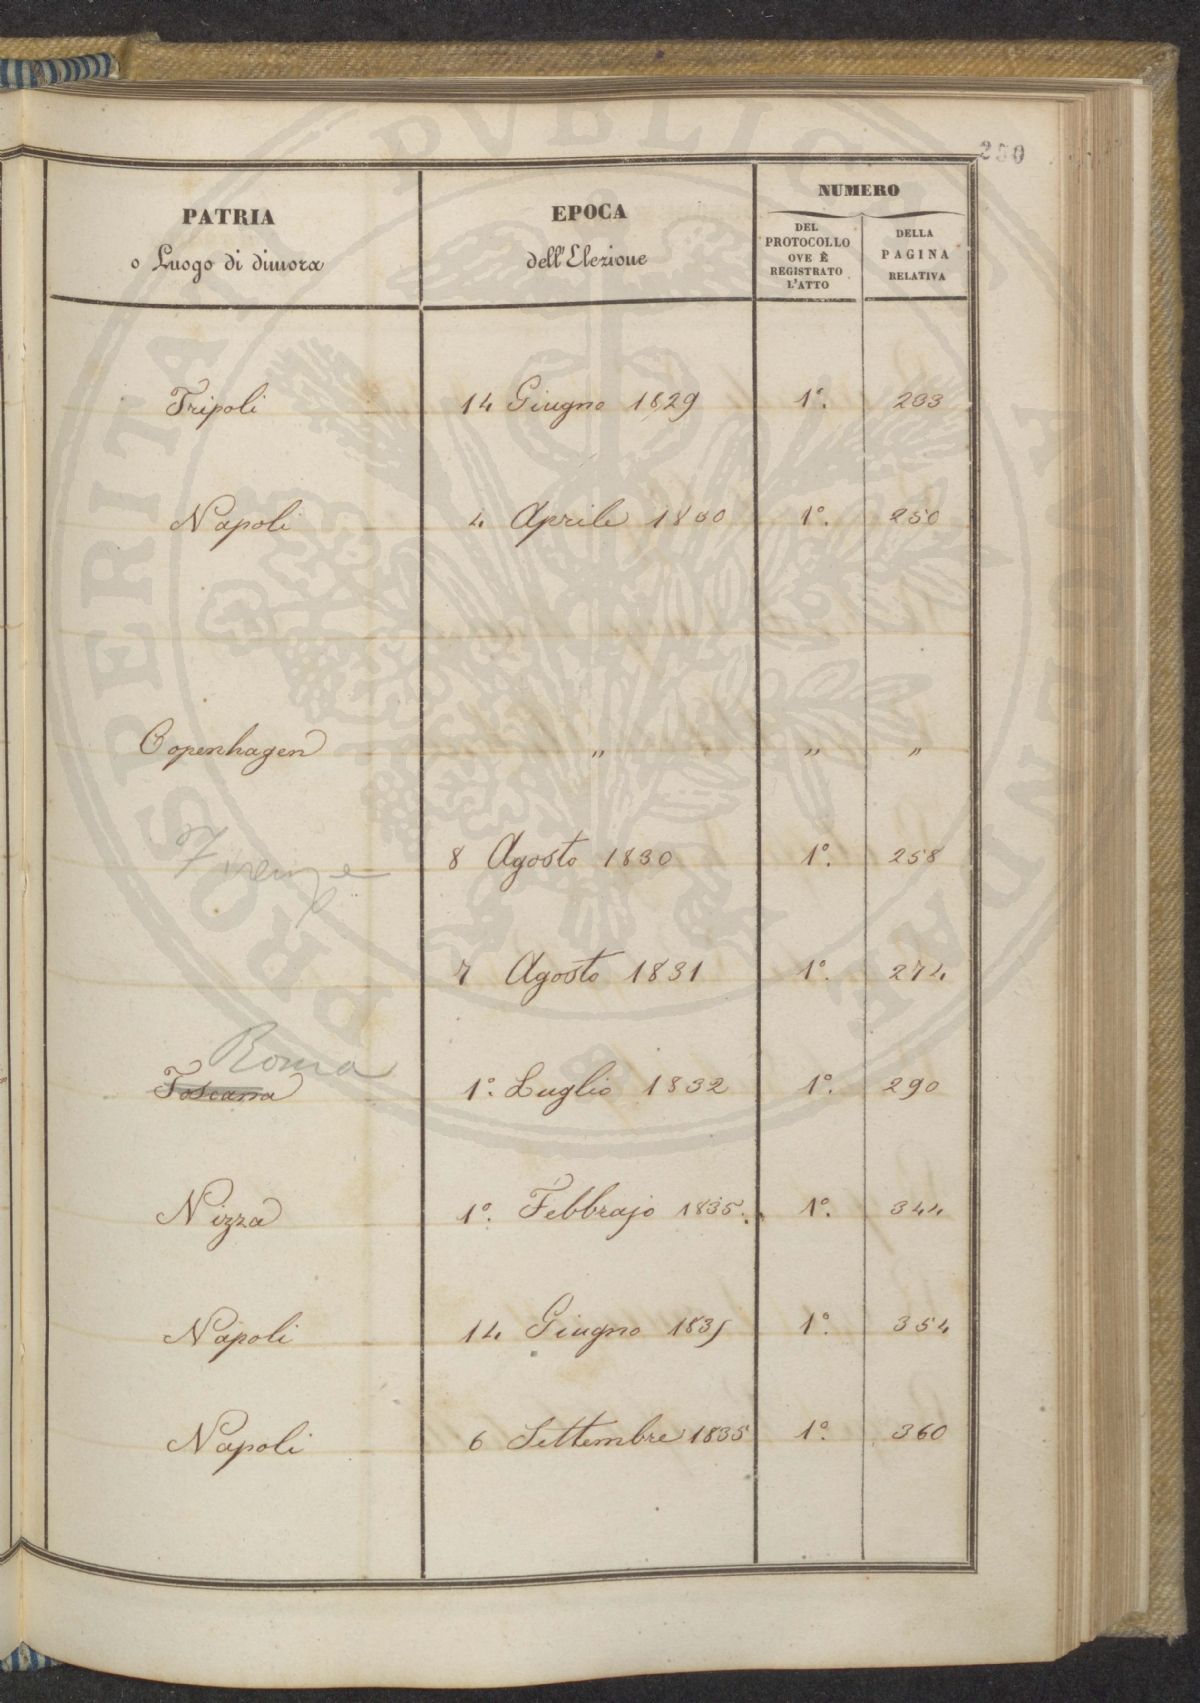 250
PATRIA
o Luogo di dimora
EPOCA
dell'Elezione
NUMERO
DEL
PROTOCOLLO
OVE È
REGISTRATO
L'ATTO
DELLA
PAGINA
RELATIVA
Tripoli 14 Giugno 1829 1º. 233
Napoli 4 Aprile 1830 1º. 250
Copenhagen " " "
Firenze 8 Agosto 1830 1º. 258
7 Agosto 1831 1º. 274
Roma
Toscana 1º. Luglio 1832 1º. 290
Nizza 1º. Febbrajo 1835. 1º. 344
Napoli 14 Giugno 1835 1º. 354
Napoli 6 Settembre 1835 1º. 360
PROSPERITATI PVBLICAE AVGENDAE